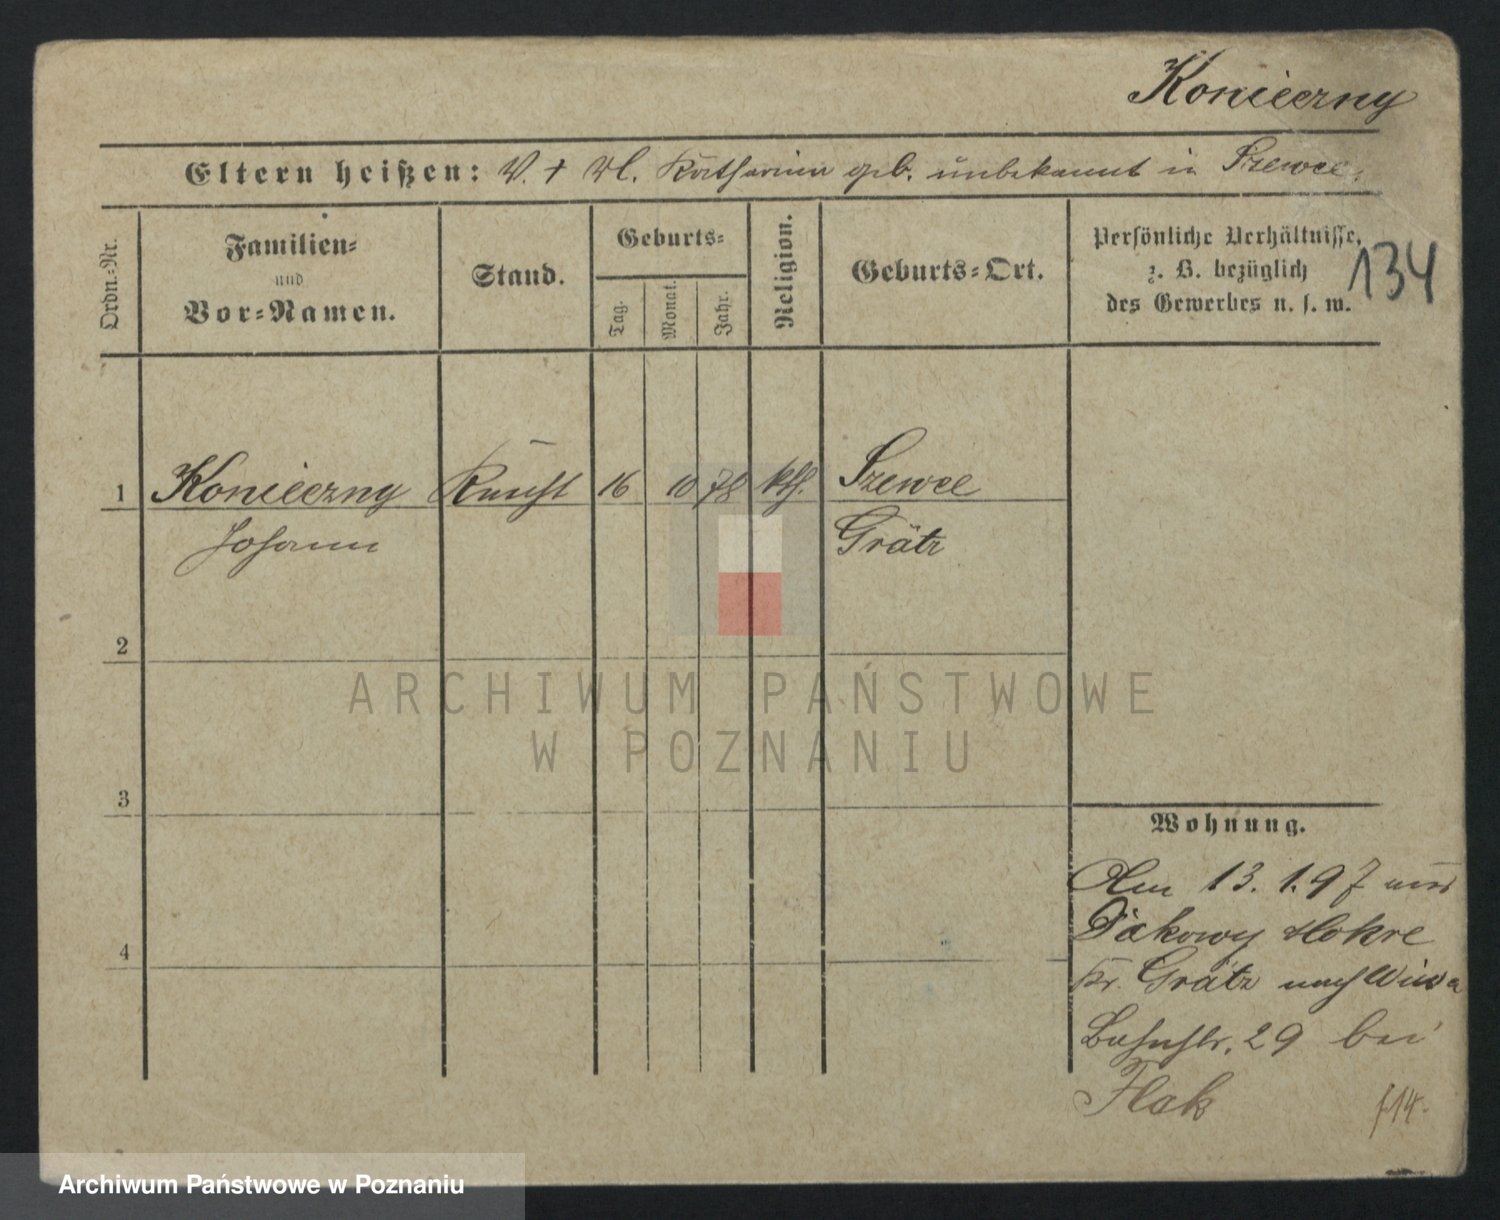 Konieczny
Eltern heißen: V. † M. Katharina geb. unbekannt in Szewce.
Ordn.-Nr.
Familien-
und
Vor-Namen.
Stand.
Geburts-
Tag.
Monat.
Jahr.
Religion.
Geburts-Ort.
Persönliche Verhältnisse,
z. B. bezüglich
des Gewerbes u. s. w.
134
1 Konieczny Knecht 16 10 78 kth. Szewce
Johann Grätz
2
3
4
Wohnung.
Am 13.1.97 aus
Mokre
Kr. Grätz nach
Bahnstr. 29 bei
Flak
ARCHIWUM PAŃSTWOWE
W POZNANIU
Archiwum Państwowe w Poznaniu